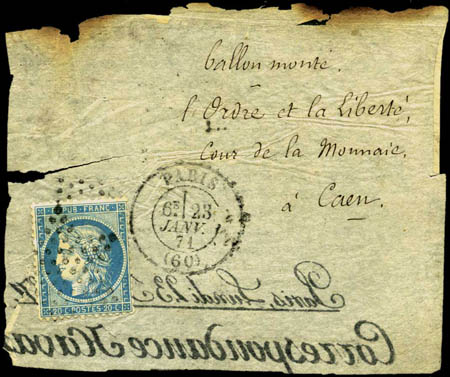 Ballon monté.
l'Ordre et la Liberté,
Cour de la Monnaie,
à Caen.
PARIS
6E 23
JANV.
71
(60)
REPUB. FRANC.
20 C POSTES 20 C
Paris, Lundi 23
Correspondance Havas